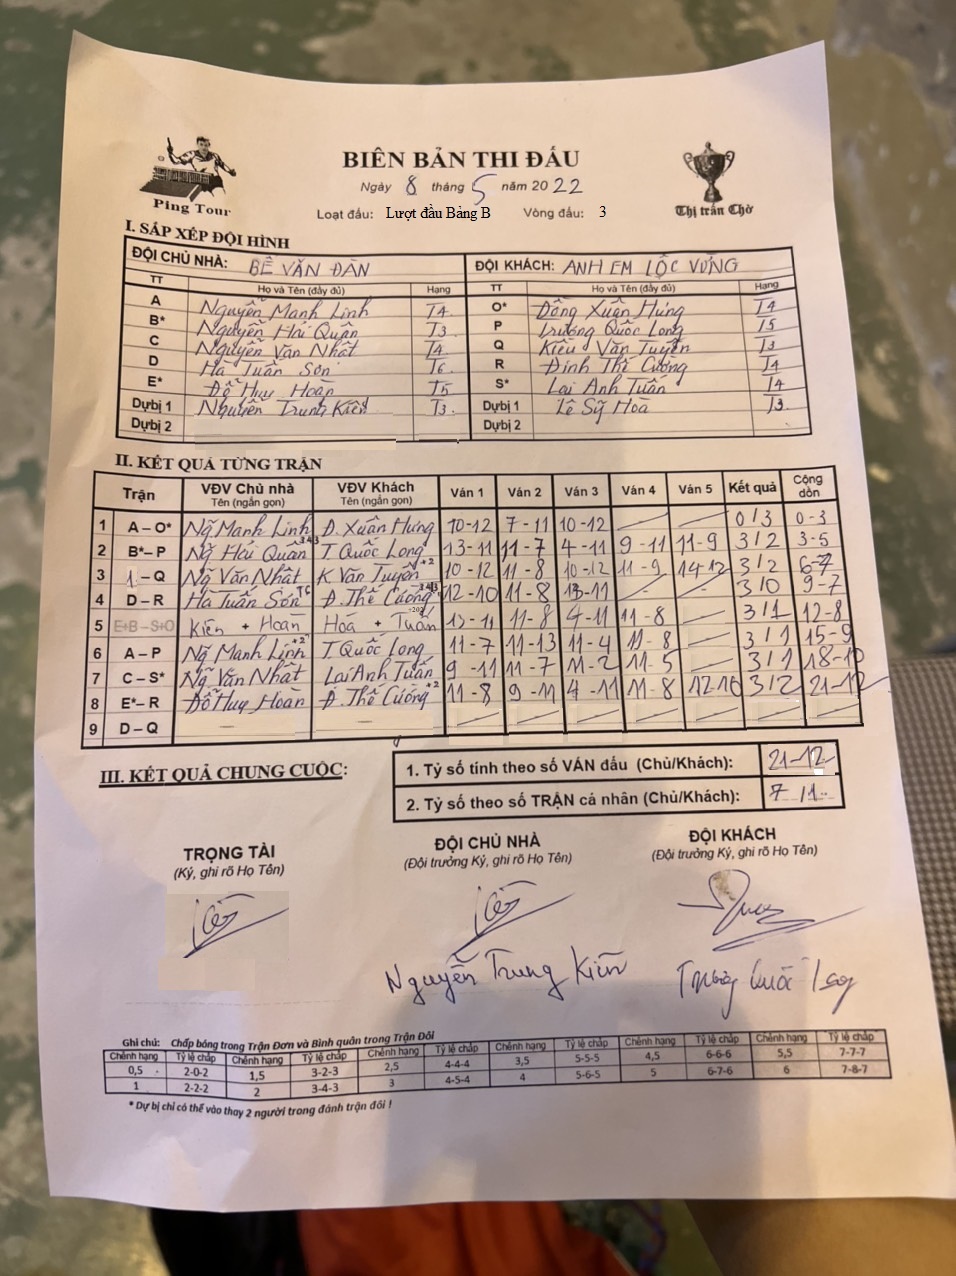 BIÊN BẢN THI ĐẤU
Ngày 8 tháng 5 năm 2022
Ping Tour
Loạt đấu: Lượt đầu Bảng B Vòng đấu: 3
Thị trấn Chờ
I. SẮP XẾP ĐỘI HÌNH
ĐỘI CHỦ NHÀ: BẾ VĂN ĐÀN ĐỘI KHÁCH: ANH EM LỘC VỪNG
TT Họ và Tên (đầy đủ) Hạng TT Họ và Tên (đầy đủ) Hạng
A Nguyễn Mạnh Linh T4 O* Đồng Xuân Hưng T4
B* Nguyễn Hải Quân T3 P Trương Quốc Long T5
C Nguyễn Văn Nhất T4 Q Kiều Văn Tuyển T3
D Hà Tuấn Sơn T6 R Đinh Thế Cường T4
E* Đỗ Huy Hoàn T5 S* Lại Anh Tuấn T4
Dự bị 1 Nguyễn Trung Kiên T3 Dự bị 1 Lê Sỹ Hoà T3
Dự bị 2 Dự bị 2
II. KẾT QUẢ TỪNG TRẬN
Trận VĐV Chủ nhà Tên (ngắn gọn) VĐV Khách Tên (ngắn gọn) Ván 1 Ván 2 Ván 3 Ván 4 Ván 5 Kết quả Cộng dồn
1 A – O* Ng Mạnh Linh Đ. Xuân Hưng 10-12 7-11 10-12 0/3 0-3
2 B* – P Ng Hải Quân T Quốc Long 13-11 11-7 4-11 9-11 11-9 3/2 3-5
3 – Q Ng Văn Nhất K Văn Tuyển +2 10-12 11-8 10-12 11-9 14-12 3/2 6-7
4 D – R Hà Tuấn Sơn T6 Đ. Thế Cường 12-10 11-8 13-11 3/0 9-7
5 E+B – S+O Kiên + Hoàn Hoà + Tuấn 11-8 4-11 11-8 3/1 12-8
6 A – P Ng Mạnh Linh +2 T Quốc Long 11-7 11-13 11-4 11-8 3/1 15-9
7 C – S* Ng Văn Nhất Lại Anh Tuấn 9-11 11-7 11-2 11-5 3/1 18-10
8 E* – R Đỗ Huy Hoàn Đ. Thế Cường +2 11-8 9-11 4-11 11-8 12-10 3/2 21-12
9 D – Q
III. KẾT QUẢ CHUNG CUỘC:
1. Tỷ số tính theo số VÁN đấu (Chủ/Khách): 21-12
2. Tỷ số theo số TRẬN cá nhân (Chủ/Khách): 7/1
TRỌNG TÀI ĐỘI CHỦ NHÀ ĐỘI KHÁCH
(Ký, ghi rõ Họ Tên) (Đội trưởng Ký, ghi rõ Họ Tên) (Đội trưởng Ký, ghi rõ Họ Tên)
Nguyễn Trung Kiên Trương Quốc Long
Ghi chú: Chấp bóng trong Trận Đơn và Bình quân trong Trận Đôi
Chênh hạng Tỷ lệ chấp Chênh hạng Tỷ lệ chấp Chênh hạng Tỷ lệ chấp Chênh hạng Tỷ lệ chấp Chênh hạng Tỷ lệ chấp Chênh hạng Tỷ lệ chấp
0,5 2-0-2 1,5 3-2-3 2,5 4-4-4 3,5 5-5-5 4,5 6-6-6 5,5 7-7-7
1 2-2-2 2 3-4-3 3 4-5-4 4 5-6-5 5 6-7-6 6 7-8-7
* Dự bị chỉ có thể vào thay 2 người trong đánh trận đôi !